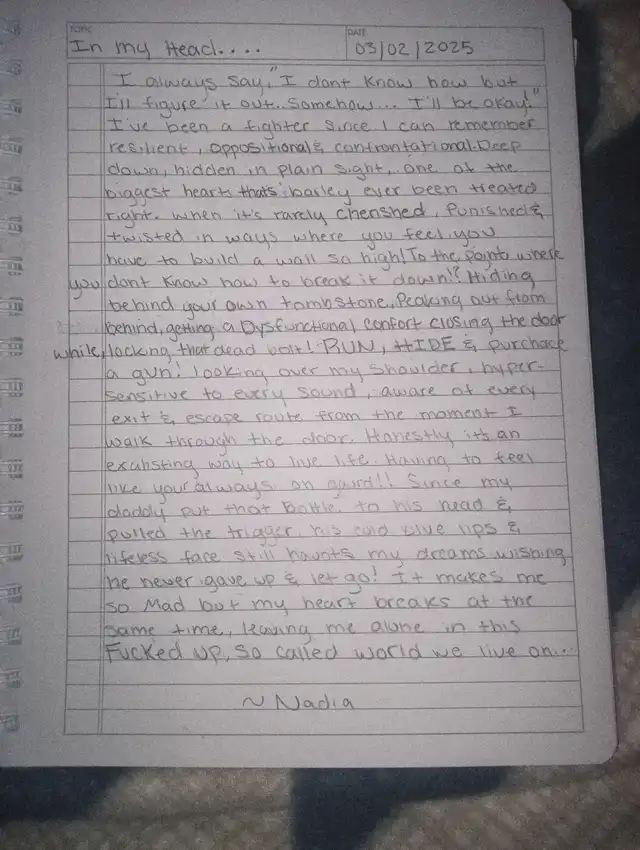 TOPIC
DATE
In my Head....
03/02/2025
"I always say, "I dont know how but
I'll figure it out.. Somehow... I'll be okay!"
I've been a fighter since I can remember
resilient, oppositional & confrontational. Deep
down, hidden in plain sight, one of the
biggest hearts thats barley ever been treated
right. when it's rarely cherished, Punished &
twisted in ways where you feel you
have to build a wall so high! To the point where
you dont know how to break it down!? Hiding
behind your own tombstone, Peaking out from
behind, getting a Dysfunctional confort closing the door
while, locking that dead bolt! RUN, HIDE & purchase
a gun! looking over my shoulder, hyper-
sensitive to every sound, aware of every
exit & escape route from the moment I
walk through the door. Honestly it's an
exahsting way to live life. Having to feel
like your always on gaurd!! Since my
daddy put that bottle to his head &
pulled the trigger, his cold blue lips &
lifeless face still haunts my dreams wishing
he never gave up & let go! It makes me
so Mad but my heart breaks at the
same time, leaving me alone in this
Fucked up, so called world we live on...
~ Nadia